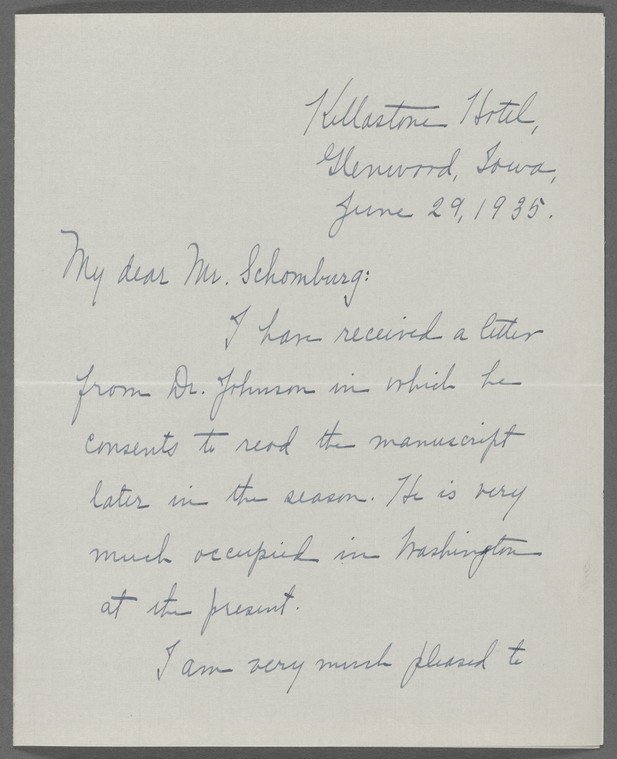 Killastone Hotel,
Glenwood, Iowa,
June 29, 1935.
My dear Mr. Schomburg:
I have received a letter
from Dr. Johnson in which he
consents to read the manuscript
later in the season. He is very
much occupied in Washington
at the present.
I am very much pleased to